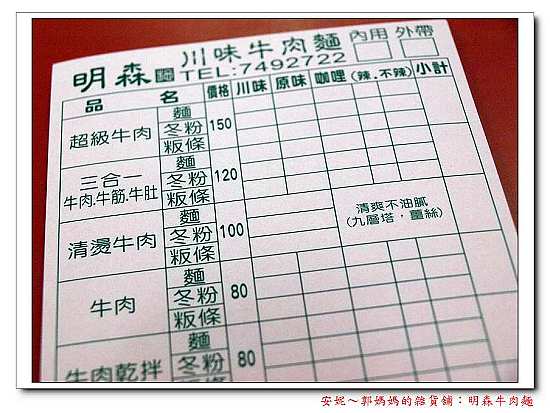 川味牛肉麵 內用 外帶
明森 TEL:7492722
品 名 價格 川味 原味 咖哩 (辣．不辣) 小計
麵
超級牛肉 冬粉 150
粄條
麵
三合一 冬粉 120
牛肉.牛筋.牛肚 粄條
麵
清燙牛肉 冬粉 100 清爽不油膩
粄條 (九層塔．薑絲)
麵
牛肉 冬粉 80
粄條
麵
牛肉乾拌 冬粉 80
安妮～郭媽媽的雜貨鋪：明森牛肉麵